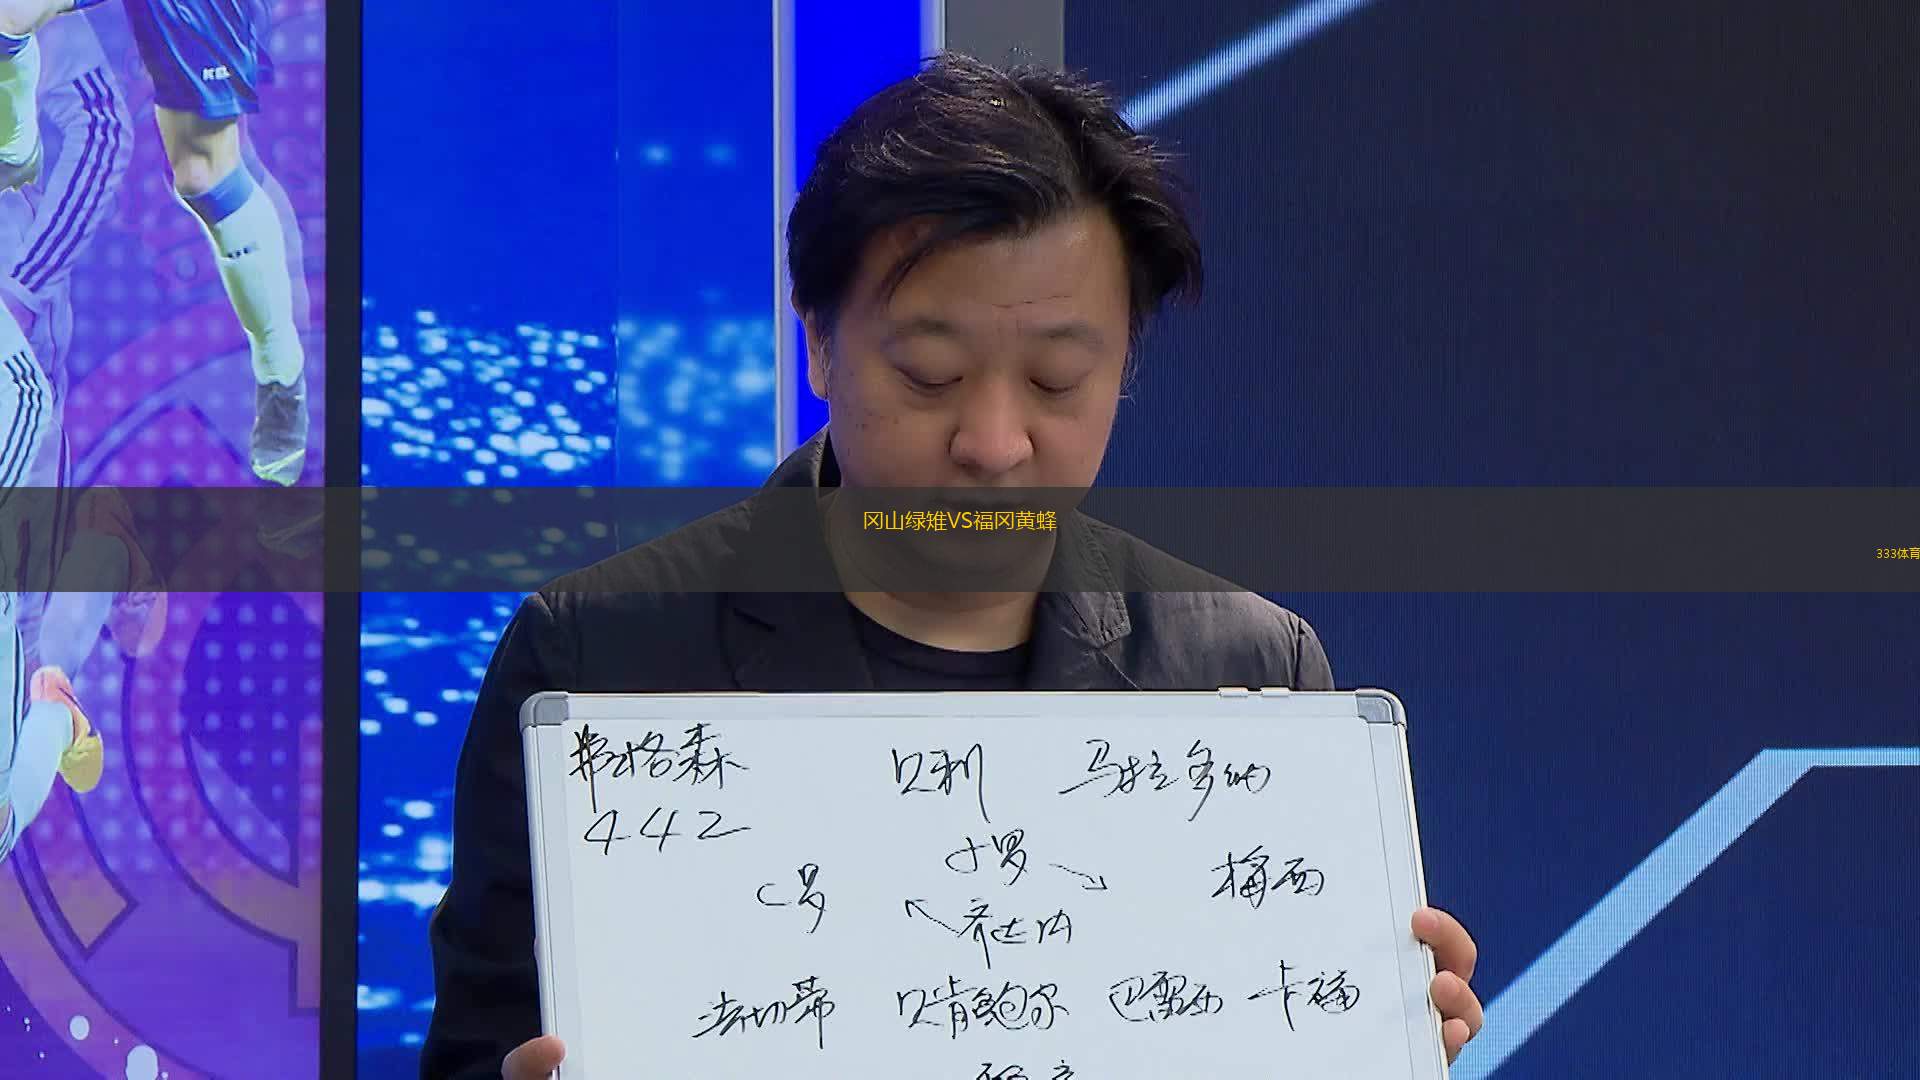 冈山绿雉VS福冈黄蜂
333体育
弗格森 贝利 马拉多纳
442
小罗
C罗 梅西
齐达内
法切蒂 贝肯鲍尔 巴雷西 卡福